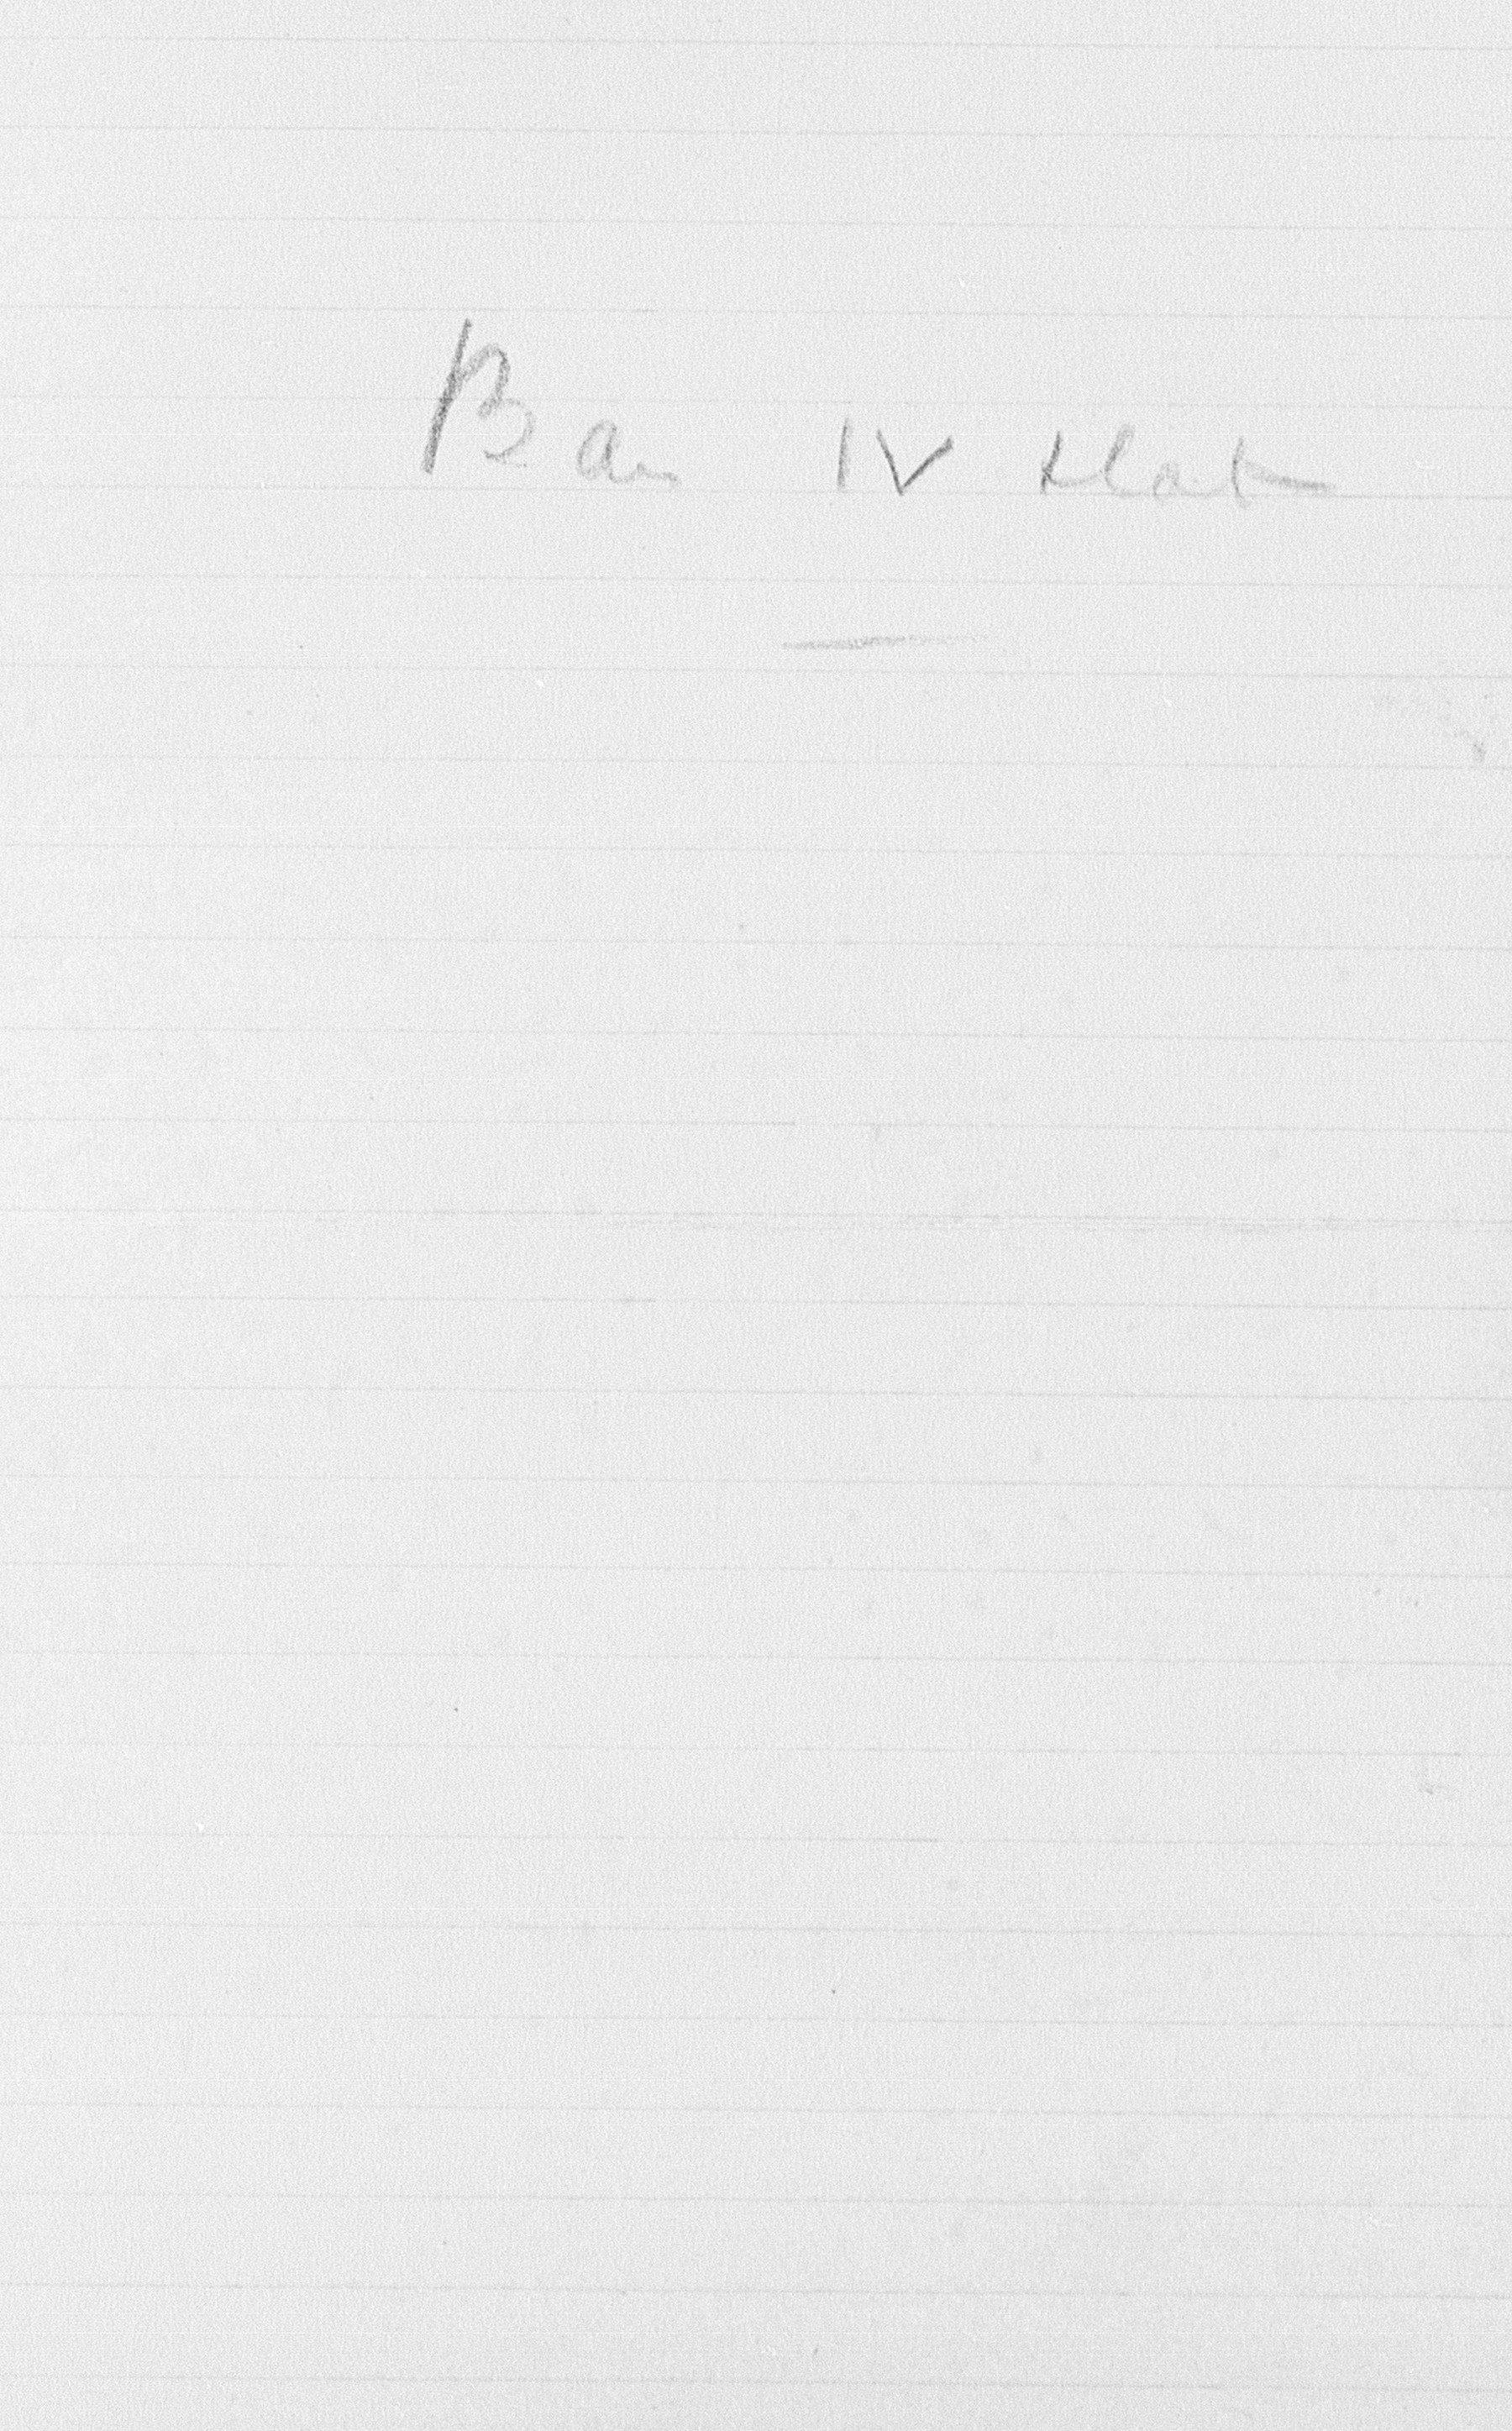 Ban IV Hat